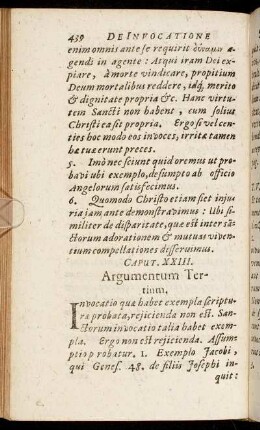 439 DE INVOCATIONE
enim omnis ante se requirit δύναμιν a-
gendi in agente : Atqui iram Dei ex-
piare, à morte vindicare, propitium
Deum mortalibus reddere, idq; merito
& dignitate propria &c. Hanc virtu-
tem Sancti non habent, cum solius
Christi ea sit propria. Ergo si vel cen-
ties hoc modo eos invoces, irritæ tamen
hæ tuæ erunt preces.
5. Imò nec sciunt quid oremus ut pro-
bavi ubi exemplo, desumpto ab officio
Angelorum satisfecimus.
6. Quomodo Christo etiam fiet inju-
ria jam ante demonstravimus : Ubi si-
militer de disparitate, quæ est inter sā-
ctorum adorationem & mutuas viven-
tium compellationes disseruimus.
CAPUT. XXIII.
Argumentum Ter-
tium.
Invocatio quæ habet exempla scriptu-
ræ probata, rejicienda non est. San-
ctorum invocatio talia habet exem-
pla. Ergo non est rejicienda. Assum-
ptio probatur. 1. Exemplo Jacobi,
qui Genes. 48. de filiis Josephi in-
quit: